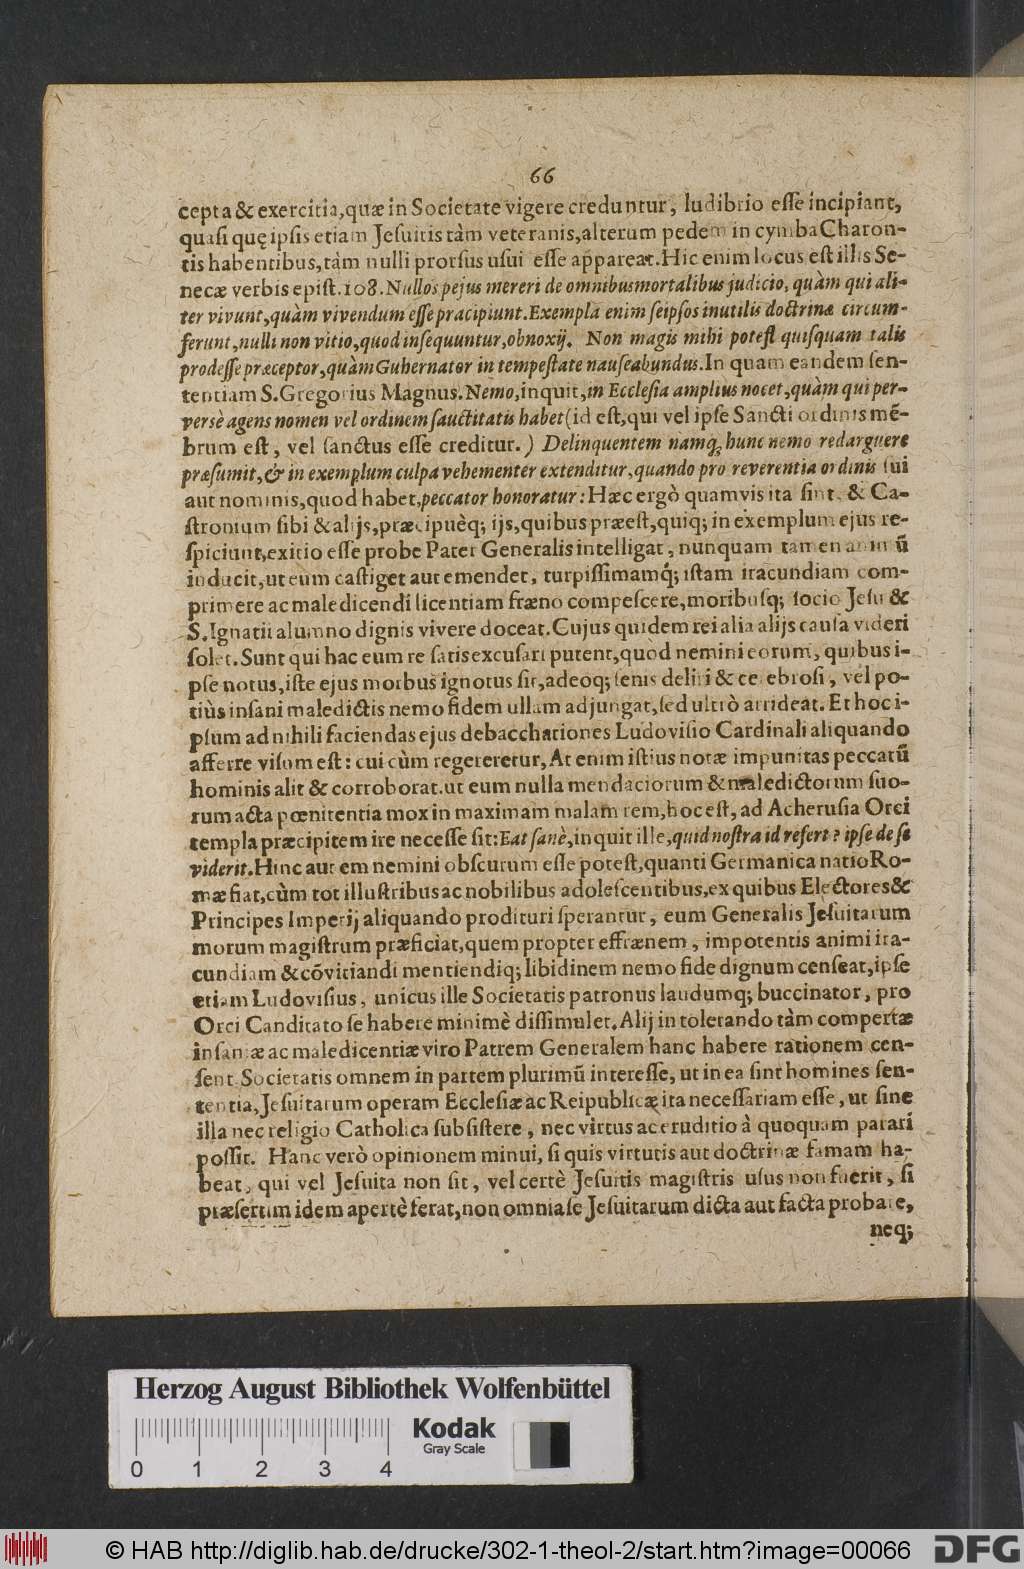 66
cepta & exercitia, quæ in Societate vigere creduntur, ludibrio eſſe incipiant,
quaſi quę ipſis etiam Jeſuitis tàm veteranis, alterum pedem in cymba Charon-
tis habentibus, tàm nulli prorſus uſui eſſe appareat. Hic enim locus eſt illis Se-
necæ verbis epiſt. 108. Nullos pejus mereri de omnibus mortalibus judicio, quàm qui ali-
ter vivunt, quàm vivendum eſſe præcipiunt. Exempla enim ſeipſos inutilis doctrinæ circum-
ferunt, nulli non vitio, quod inſequuntur, obnoxij. Non magis mihi poteſt quiſquam talis
prodeſſe præceptor, quàm Gubernator in tempeſtate nauſeabundus. In quam eandem ſen-
tentiam S. Gregorius Magnus. Nemo, inquit, in Eccleſia amplius nocet, quàm qui per-
versè agens nomen vel ordinem ſauctitatis habet (id eſt, qui vel ipſe Sancti ordinis mẽ-
brum eſt, vel ſanctus eſſe creditur.) Delinquentem namq; hunc nemo redarguere
præſumit, & in exemplum culpa vehementer extenditur, quando pro reverentia ordinis ſui
aut nominis, quod habet, peccator honoratur: Hæc ergò quamvis ita ſint, & Ca-
ſtronium ſibi & alijs, præcipuèq; ijs, quibus præeſt, quiq; in exemplum ejus re-
ſpiciunt, exitio eſſe probe Pater Generalis intelligat, nunquam tamen animũ
inducit, ut eum caſtiget aut emendet, turpiſſimamq́; iſtam iracundiam com-
primere ac maledicendi licentiam fræno compeſcere, moribuſq; ſocio Jeſu &
S. Ignatii alumno dignis vivere doceat. Cujus quidem rei alia alijs cauſa videri
ſolet. Sunt qui hac eum re ſatis excuſari putent, quod nemini eorum, quibus i-
pſe notus, iſte ejus morbus ignotus ſit, adeoq; ſenis deliri & cerebroſi, vel po-
tiùs inſani maledictis nemo fidem ullam adjungat, ſed ultrò arrideat. Et hoc i-
pſum ad nihili faciendas ejus debacchationes Ludoviſio Cardinali aliquando
afferre viſum eſt: cui cùm regereretur, At enim iſtius notæ impunitas peccatũ
hominis alit & corroborat. ut eum nulla mendaciorum & maledictorum ſuo-
rum acta pœnitentia mox in maximam malam rem, hoc eſt, ad Acheruſia Orci
templa præcipitem ire neceſſe ſit: Eat ſanè, inquit ille, quid noſtra id refert? ipſe de ſe
viderit. Hinc autem nemini obſcurum eſſe poteſt, quanti Germanica natio Ro-
mæ fiat, cùm tot illuſtribus ac nobilibus adoleſcentibus, ex quibus Electores &
Principes Imperij aliquando prodituri ſperantur, eum Generalis Jeſuitarum
morum magiſtrum præficiat, quem propter effrænem, impotentis animi ira-
cundiam & cõvitiandi mentiendiq; libidinem nemo fide dignum cenſeat, ipſe
etiam Ludoviſius, unicus ille Societatis patronus laudumq; buccinator, pro
Orci Canditato ſe habere minimè diſſimulet. Alij in tolerando tàm compertæ
inſaniæ ac maledicentiæ viro Patrem Generalem hanc habere rationem cen-
ſent. Societatis omnem in partem plurimũ intereſſe, ut in ea ſint homines ſen-
tentia, Jeſuitarum operam Eccleſiæ ac Reipublicæ ita neceſſariam eſſe, ut ſine
illa nec religio Catholica ſubſiſtere, nec virtus ac eruditio à quoquam parari
poſſit. Hanc verò opinionem minui, ſi quis virtutis aut doctrinæ famam ha-
beat, qui vel Jeſuita non ſit, vel certè Jeſuitis magiſtris uſus non fuerit, ſi
præſertim idem apertè ferat, non omnia ſe Jeſuitarum dicta aut facta probare,
neq;
Herzog August Bibliothek Wolfenbüttel
Kodak
Gray Scale
0 1 2 3 4
© HAB http://diglib.hab.de/drucke/302-1-theol-2/start.htm?image=00066
DFG